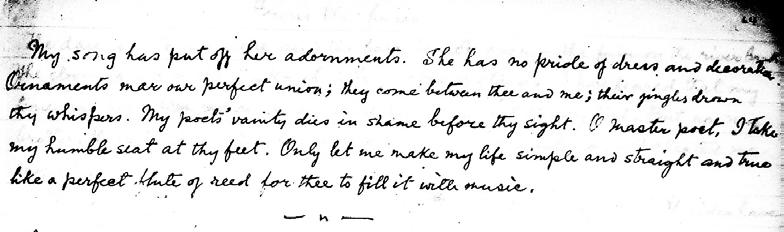 My song has put off her adornments. She has no pride of dress and decoration.
Ornaments mar our perfect union; they come between thee and me; their jingles drown
thy whispers. My poets' vanity dies in shame before thy sight. O Master poet, I take
my humble seat at thy feet. Only let me make my life simple and straight and true
like a perfect flute of reed for thee to fill it with music.
— n —